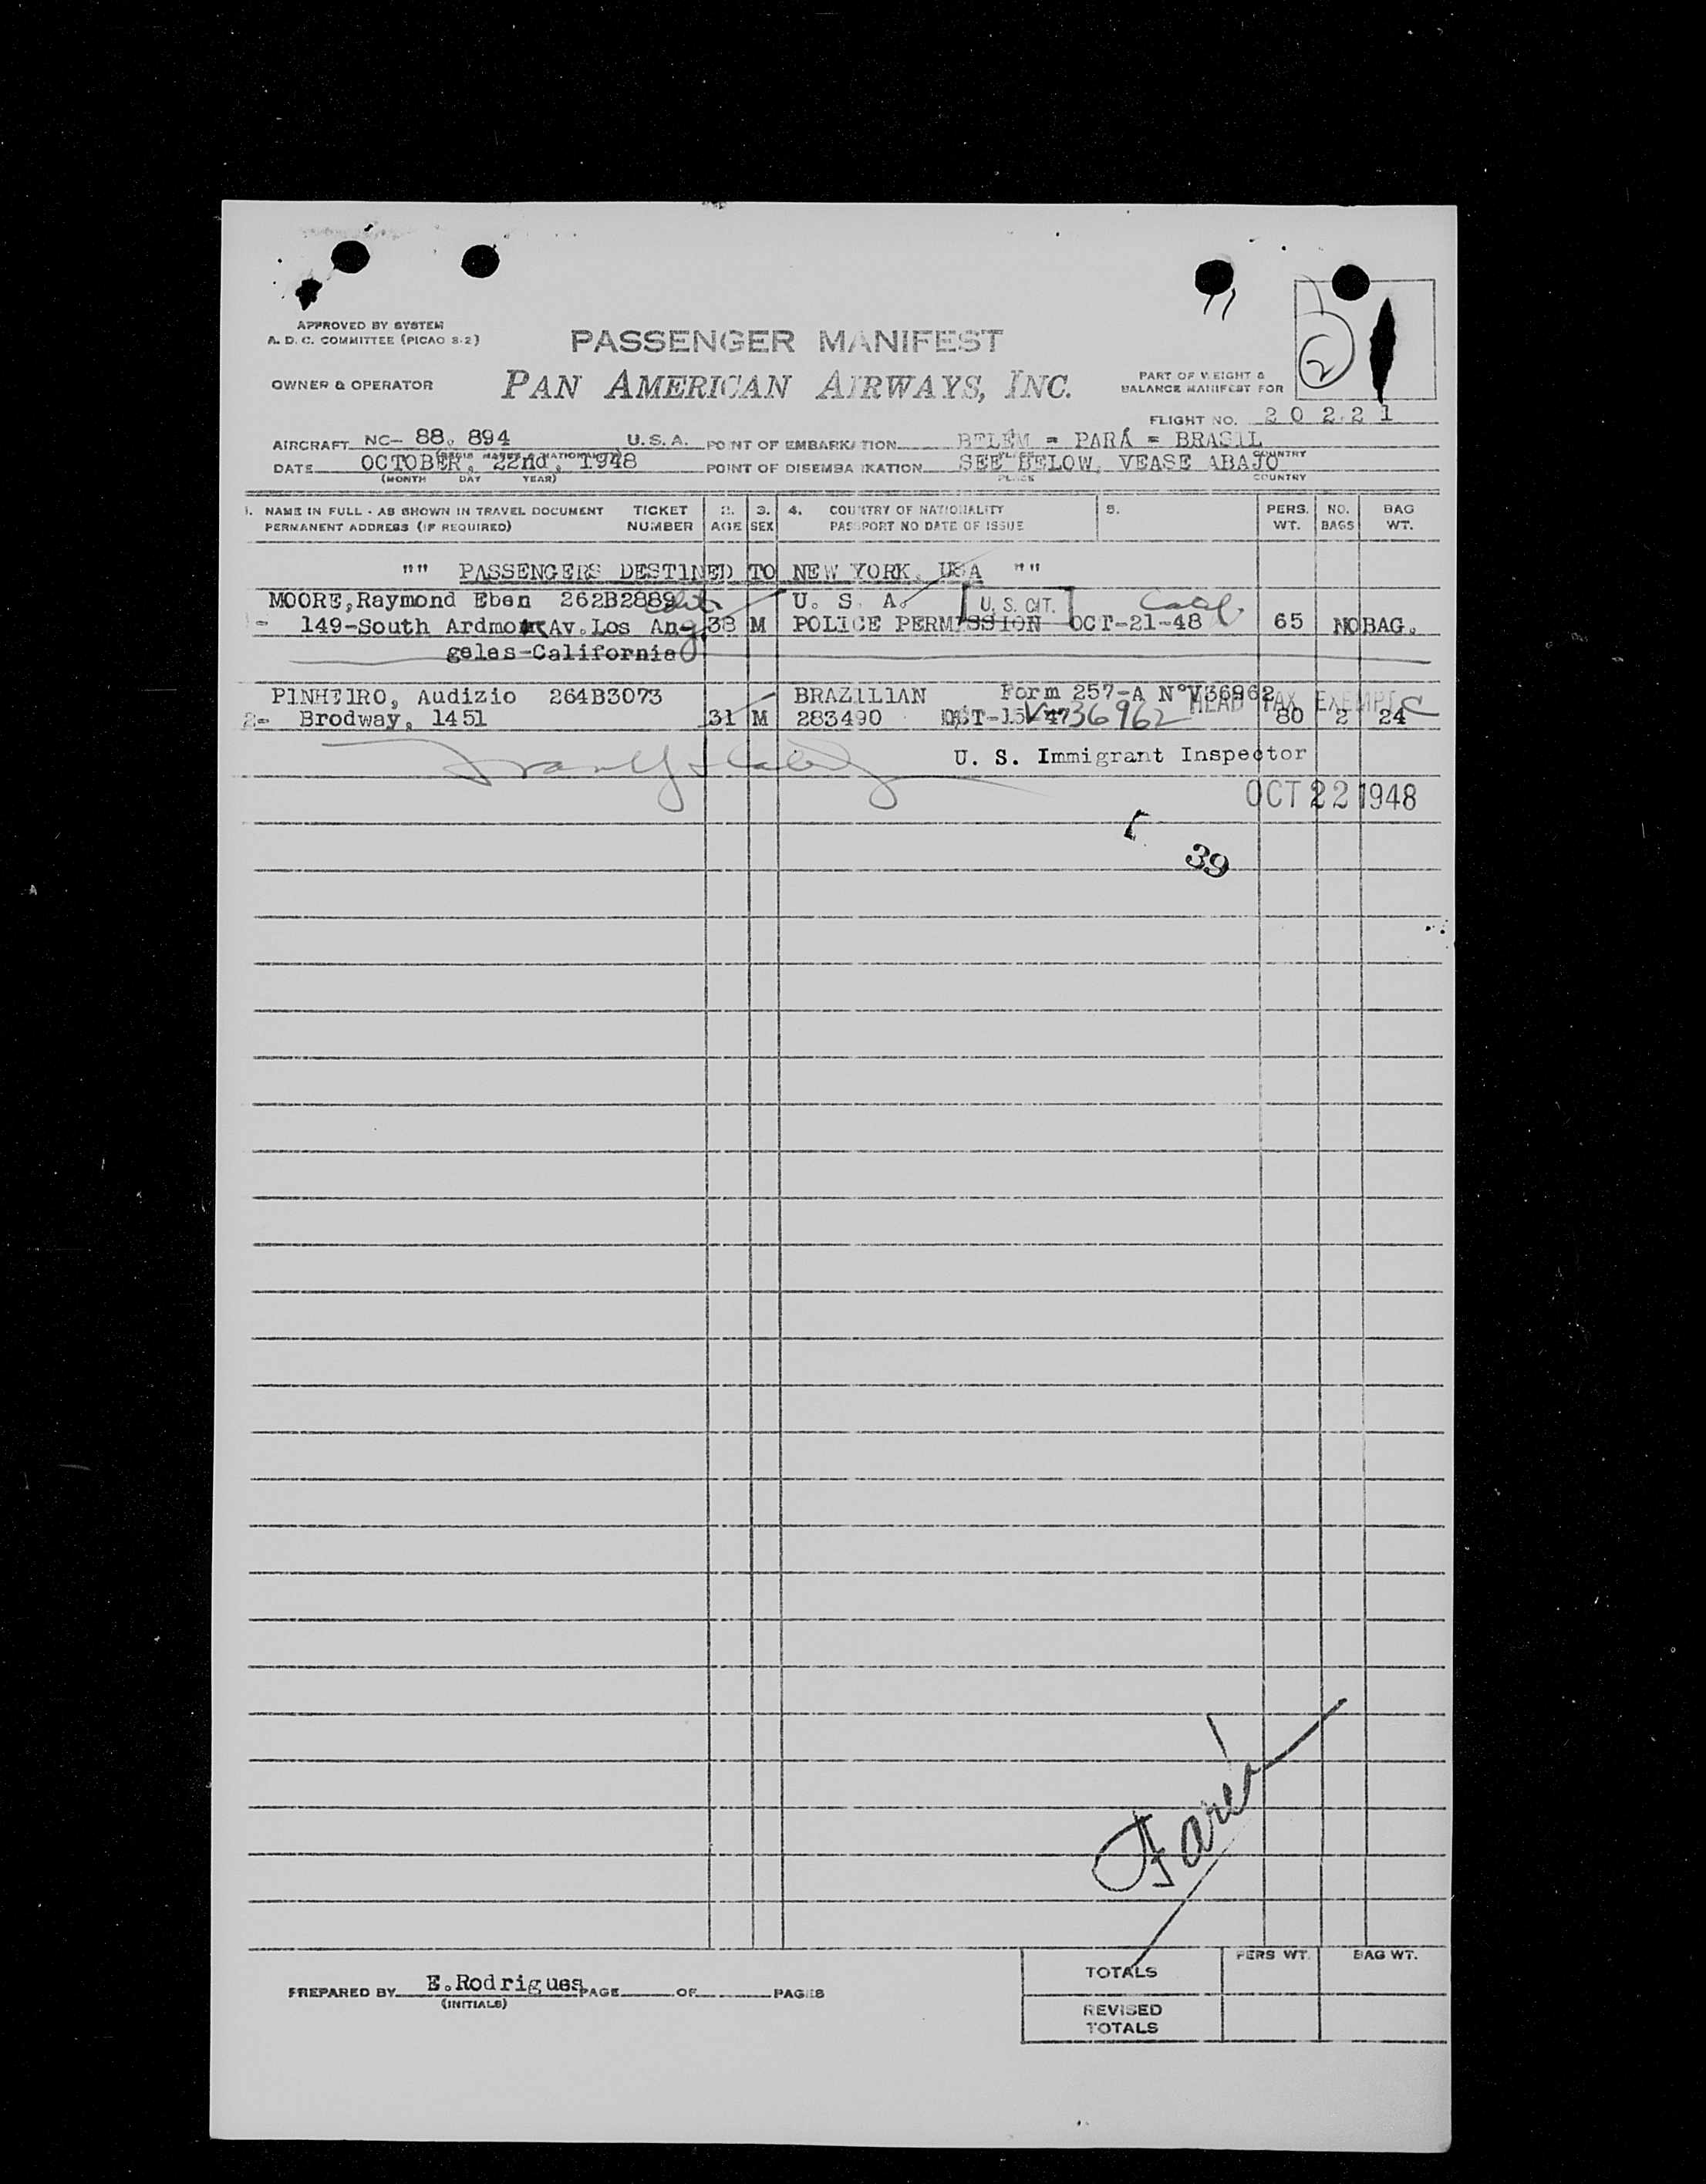 APPROVED BY SYSTEM
A. D. C. COMMITTEE (PICAO S-2)
PASSENGER MANIFEST
OWNER & OPERATOR
PAN AMERICAN AIRWAYS, INC.
PART OF WEIGHT &
BALANCE MANIFEST FOR
2
FLIGHT NO. 2 0 2.2 1
AIRCRAFT NC- 88. 894 U.S.A. POINT OF EMBARKATION BELÉM = PARÁ = BRASIL
DATE OCTOBER, 22nd, 1948 POINT OF DISEMBARKATION SEE BELOW, VEASE ABAJO
(MONTH DAY YEAR) PLACE COUNTRY
1. NAME IN FULL - AS SHOWN IN TRAVEL DOCUMENT TICKET 2. 3. 4. COUNTRY OF NATIONALITY 5. PERS. NO. BAG
PERMANENT ADDRESS (IF REQUIRED) NUMBER AGE SEX PASSPORT NO DATE OF ISSUE WT. BAGS WT.
"" PASSENGERS DEST1NED TO NEW YORK, USA ""
MOORE,Raymond Eben 262B2889 U. S. A. U. S. CIT.
1- 149-South Ardmore Av.Los An- 38 M POLICE PERMISSION OCT-21-48 65 NO BAG.
geles-California
P1NHE1RO, Audizio 264B3073 BRAZ1L1AN Form 257-A N°V36962 HEAD TAX EXEMPT
2- Brodway, 1451 31 M 283490 OCT-15-47 V-36962 80 2 24 C
U. S. Immigrant Inspector
OCT 22 1948
39
PREPARED BY E.Rodrigues PAGE OF PAGES
(INITIALS)
PERS WT. BAG WT.
TOTALS
REVISED
TOTALS